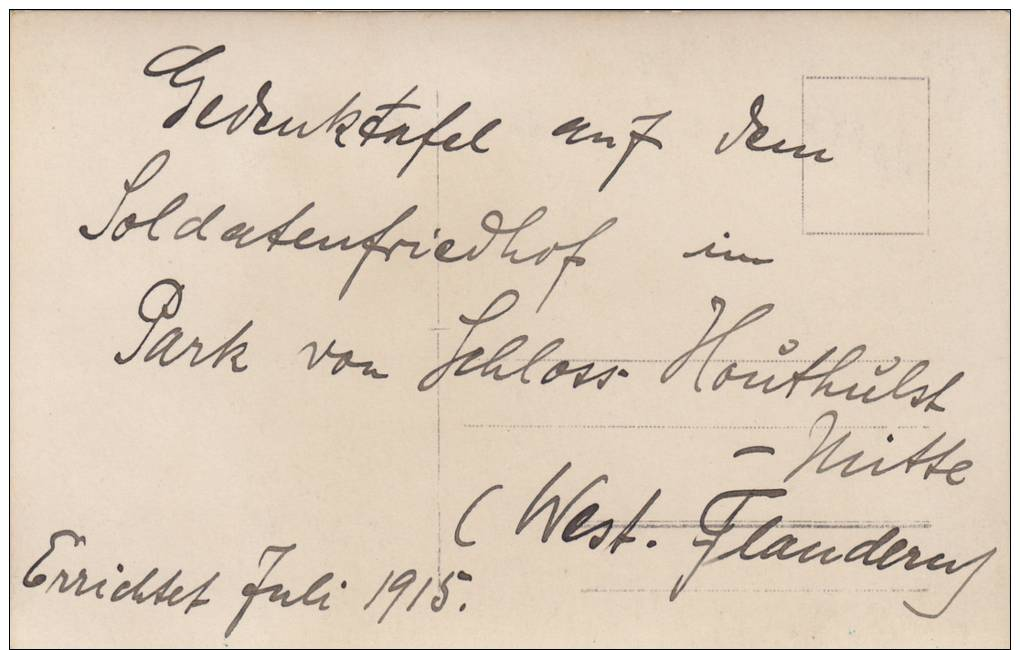 Gedenktafel auf dem
Soldatenfriedhof im
Park von Schloss Houthulst
– Mitte
(West. Flandern)
Errichtet Juli 1915.